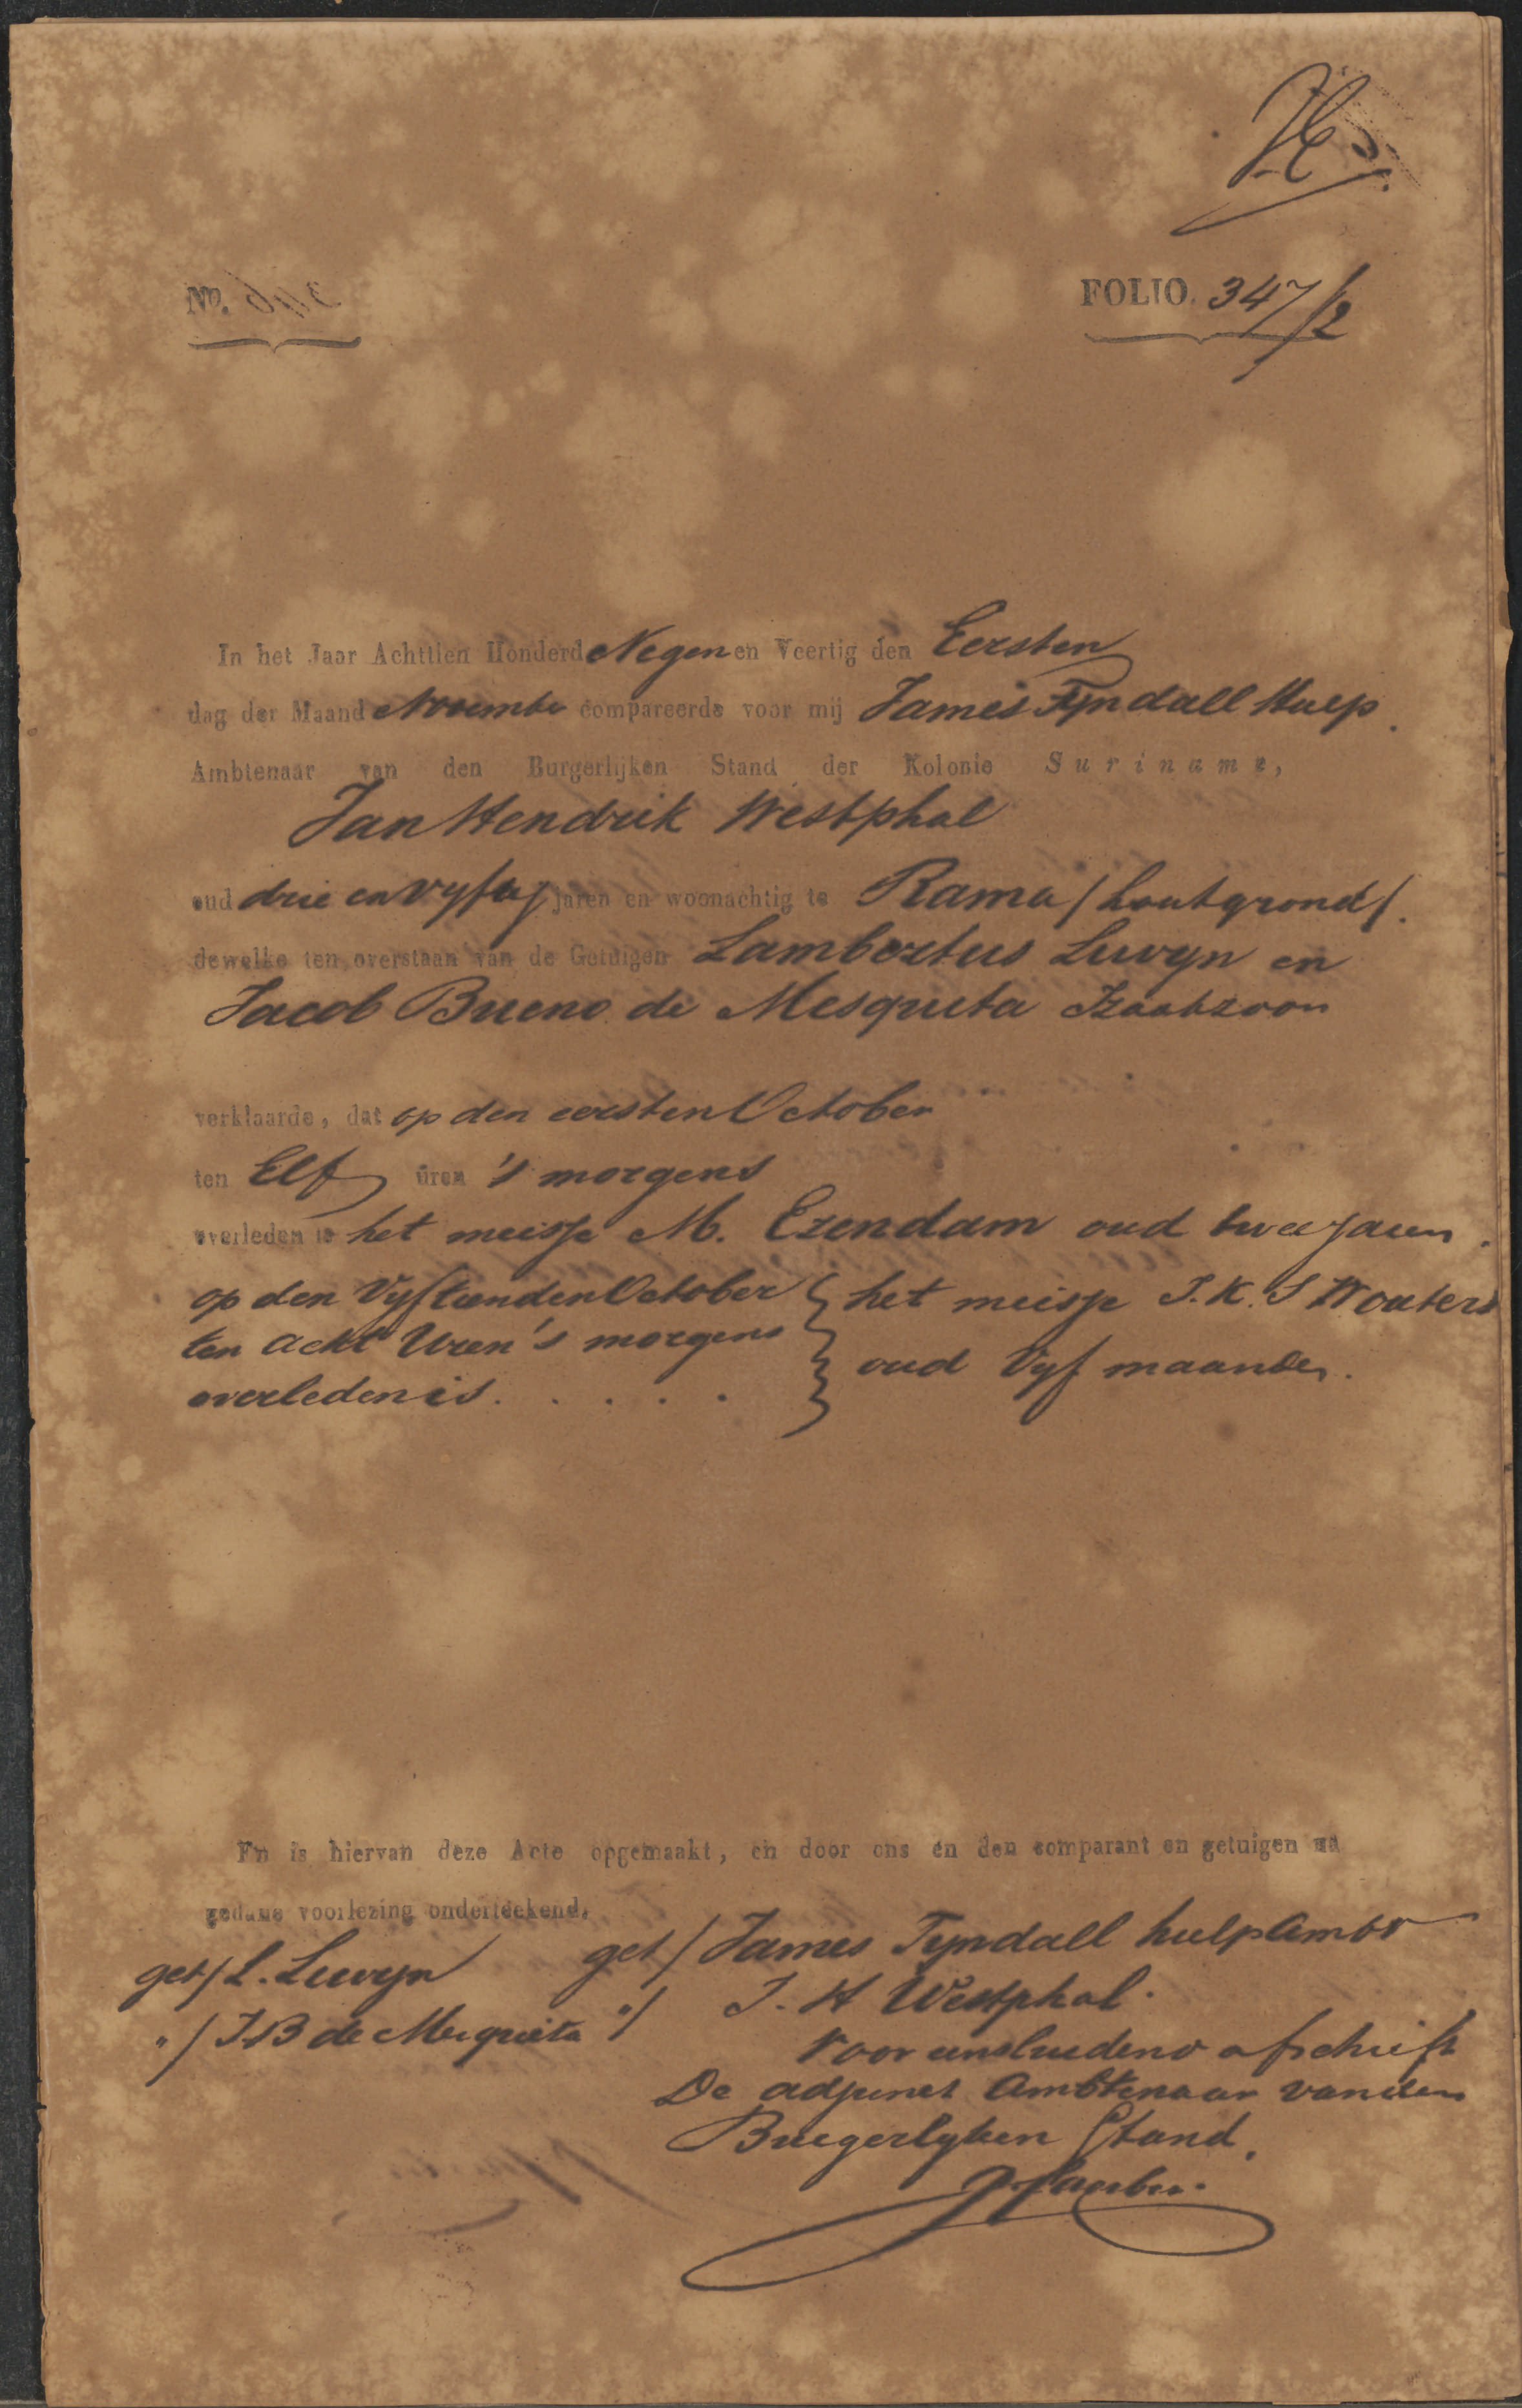 No.
FOLIO. 347/2
In het Jaar Achttien Honderd Negen en Veertig den Eersten
dag der Maand November compareerde voor mij James Tyndall Hulp
Ambtenaar van den Burgerlijken Stand der Kolonie Suriname,
Jan Hendrik Westphal
oud drie en vyftig jaren en woonachtig te Rama / houtgrond /.
dewelke ten overstaan van de Getuigen Lambertus Luvyn en
Jacob Bueno de Mesquita Izaakzoon
verklaarde, dat op den eersten October
ten Elf üren 's morgens
overleden is het meisje M. Ezendam oud twee jaren.
op den Vyftienden October } het meisje J. K. S Wouters
ten acht Uren 's morgens
oud Vyf maanden.
overleden is. . . . . .
En is hiervan deze Acte opgemaakt, en door ons en den comparant en getuigen na
gedane voorlezing onderteekend.
get/ L. Luvyn get/ James Tyndall hulp Ambr
"/ J B de Mesquita "/ J. H Westphal.
Voor eensluidend afschrift
De adjunct Ambtenaar van den
Burgerlyken Stand.